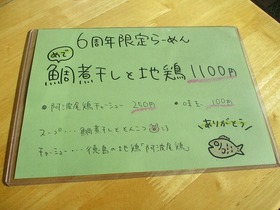 6周年限定らーめん
めで
鯛煮干しと地鶏 1100円
● 阿波尾鶏チャーシュー 250円 ● 味玉 100円
スープ…鯛煮干しととんこつ
チャーシュー…徳島の地鶏「阿波尾鶏」
ありがとう